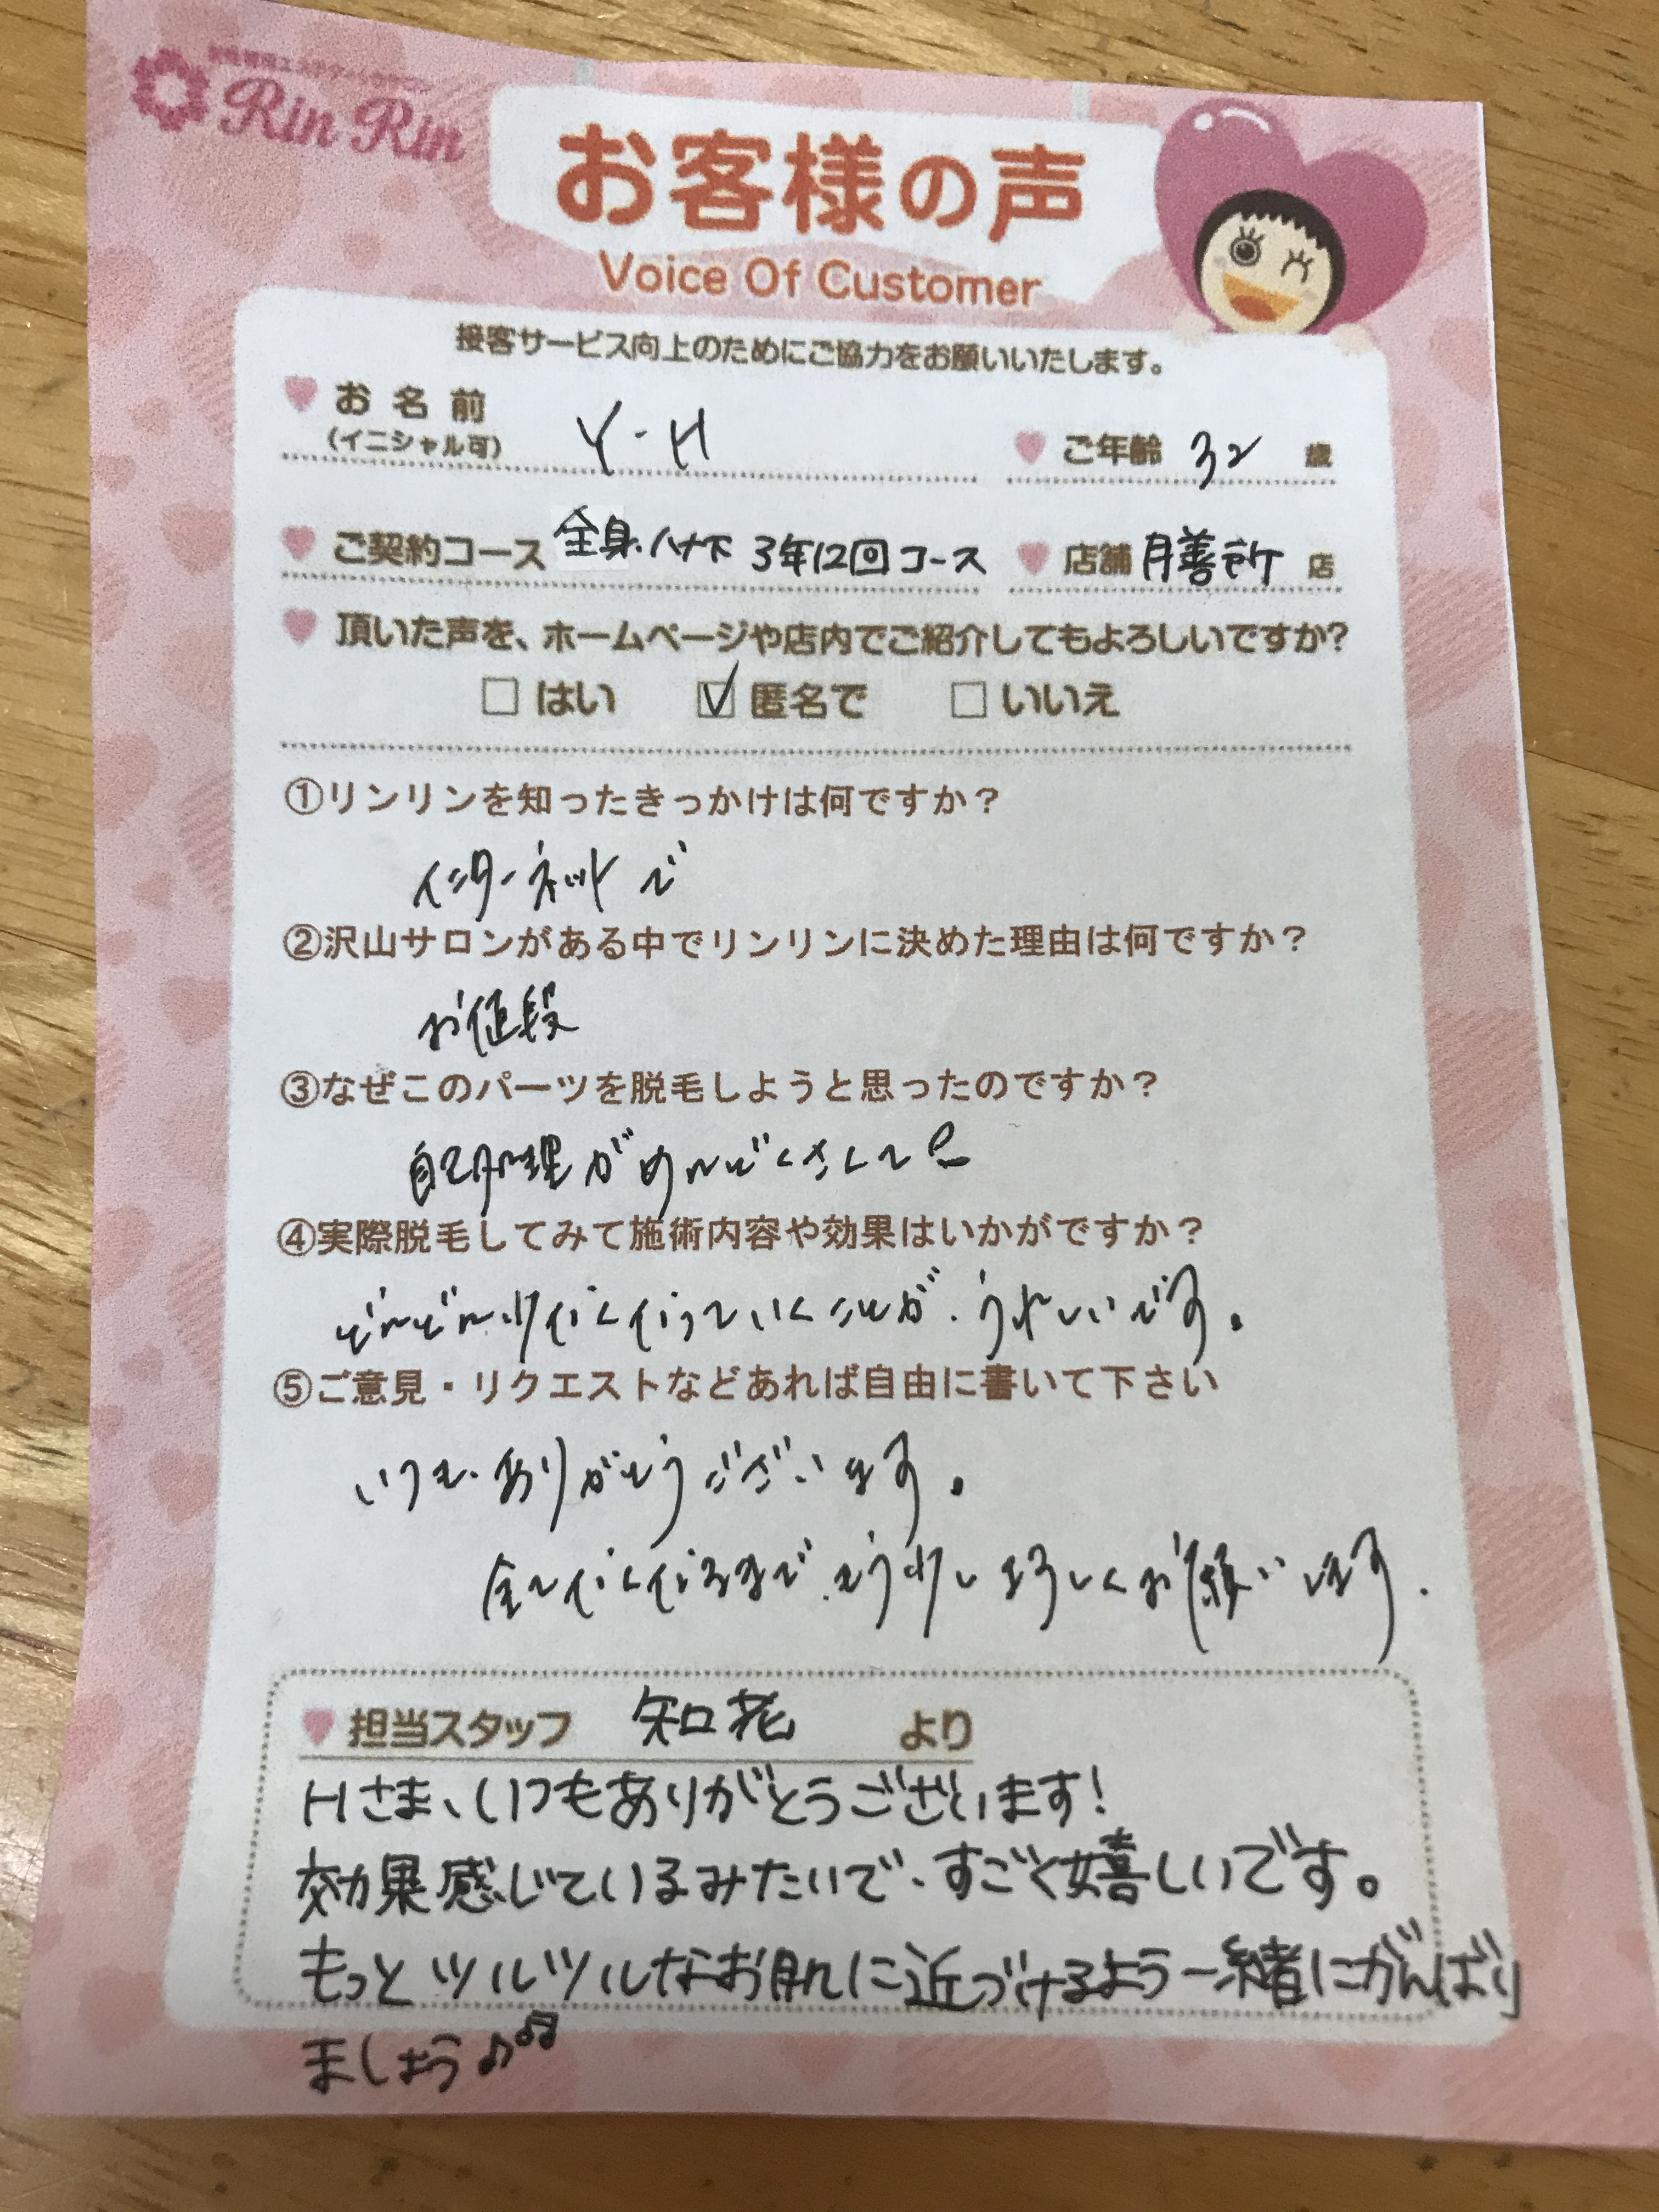 Rin Rin
お客様の声
Voice Of Customer
接客サービス向上のためにご協力をお願いいたします。
お名前 (イニシャル可) Y-H ご年齢 32 歳
ご契約コース 全身ハナ下 3年12回コース 店舗 膳所 店
頂いた声を、ホームページや店内でご紹介してもよろしいですか?
はい 匿名で いいえ
①リンリンを知ったきっかけは何ですか?
インターネットで
②沢山サロンがある中でリンリンに決めた理由は何ですか?
お値段
③なぜこのパーツを脱毛しようと思ったのですか?
自己処理がめんどくさくて
④実際脱毛してみて施術内容や効果はいかがですか?
どんどん少なくなっていくことが、うれしいです。
⑤ご意見・リクエストなどあれば自由に書いて下さい
いつも、ありがとうございます。
全てなくなるまで、もう少しよろしくお願いします.
担当スタッフ 知花 より
Hさま、いつもありがとうございます!
効果感じているみたいで、すごく嬉しいです。
もっとツルツルなお肌に近づけるよう一緒にがんばり
ましょう♪♫